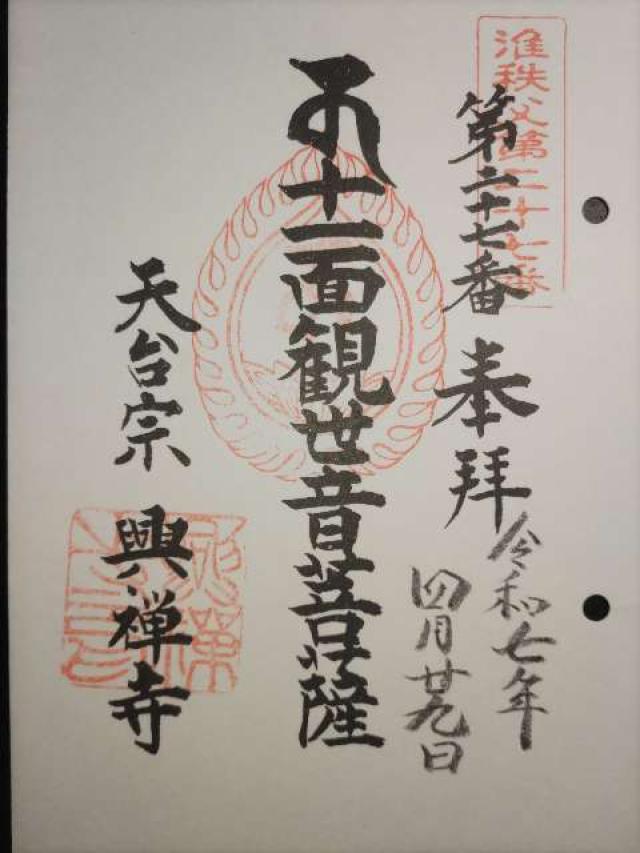 准秩父第二十七番
第二十七番
奉拝
令和七年
四月廿九日
十一面観世音菩薩
天台宗
興禅寺